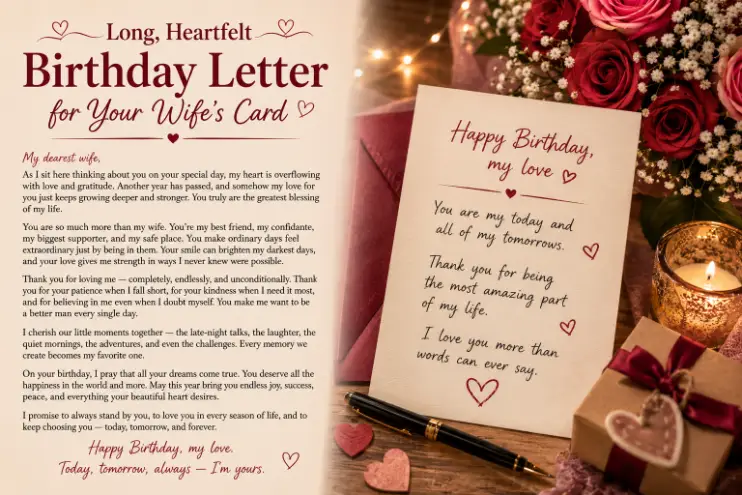 Long, Heartfelt
Birthday Letter
for Your Wife's Card
My dearest wife,
As I sit here thinking about you on your special day, my heart is overflowing
with love and gratitude. Another year has passed, and somehow my love for
you just keeps growing deeper and stronger. You truly are the greatest blessing
of my life.
You are so much more than my wife. You're my best friend, my confidante,
my biggest supporter, and my safe place. You make ordinary days feel
extraordinary just by being in them. Your smile can brighten my darkest days,
and your love gives me strength in ways I never knew were possible.
Thank you for loving me — completely, endlessly, and unconditionally. Thank
you for your patience when I fall short, for your kindness when I need it most,
and for believing in me even when I doubt myself. You make me want to be
a better man every single day.
I cherish our little moments together — the late-night talks, the laughter, the
quiet mornings, the adventures, and even the challenges. Every memory we
create becomes my favorite one.
On your birthday, I pray that all your dreams come true. You deserve all the
happiness in the world and more. May this year bring you endless joy, success,
peace, and everything your beautiful heart desires.
I promise to always stand by you, to love you in every season of life, and to
keep choosing you — today, tomorrow, and forever.
Happy Birthday, my love.
Today, tomorrow, always — I'm yours.
Happy Birthday,
my love
You are my today and
all of my tomorrows.
Thank you for being
the most amazing part
of my life.
I love you more than
words can ever say.